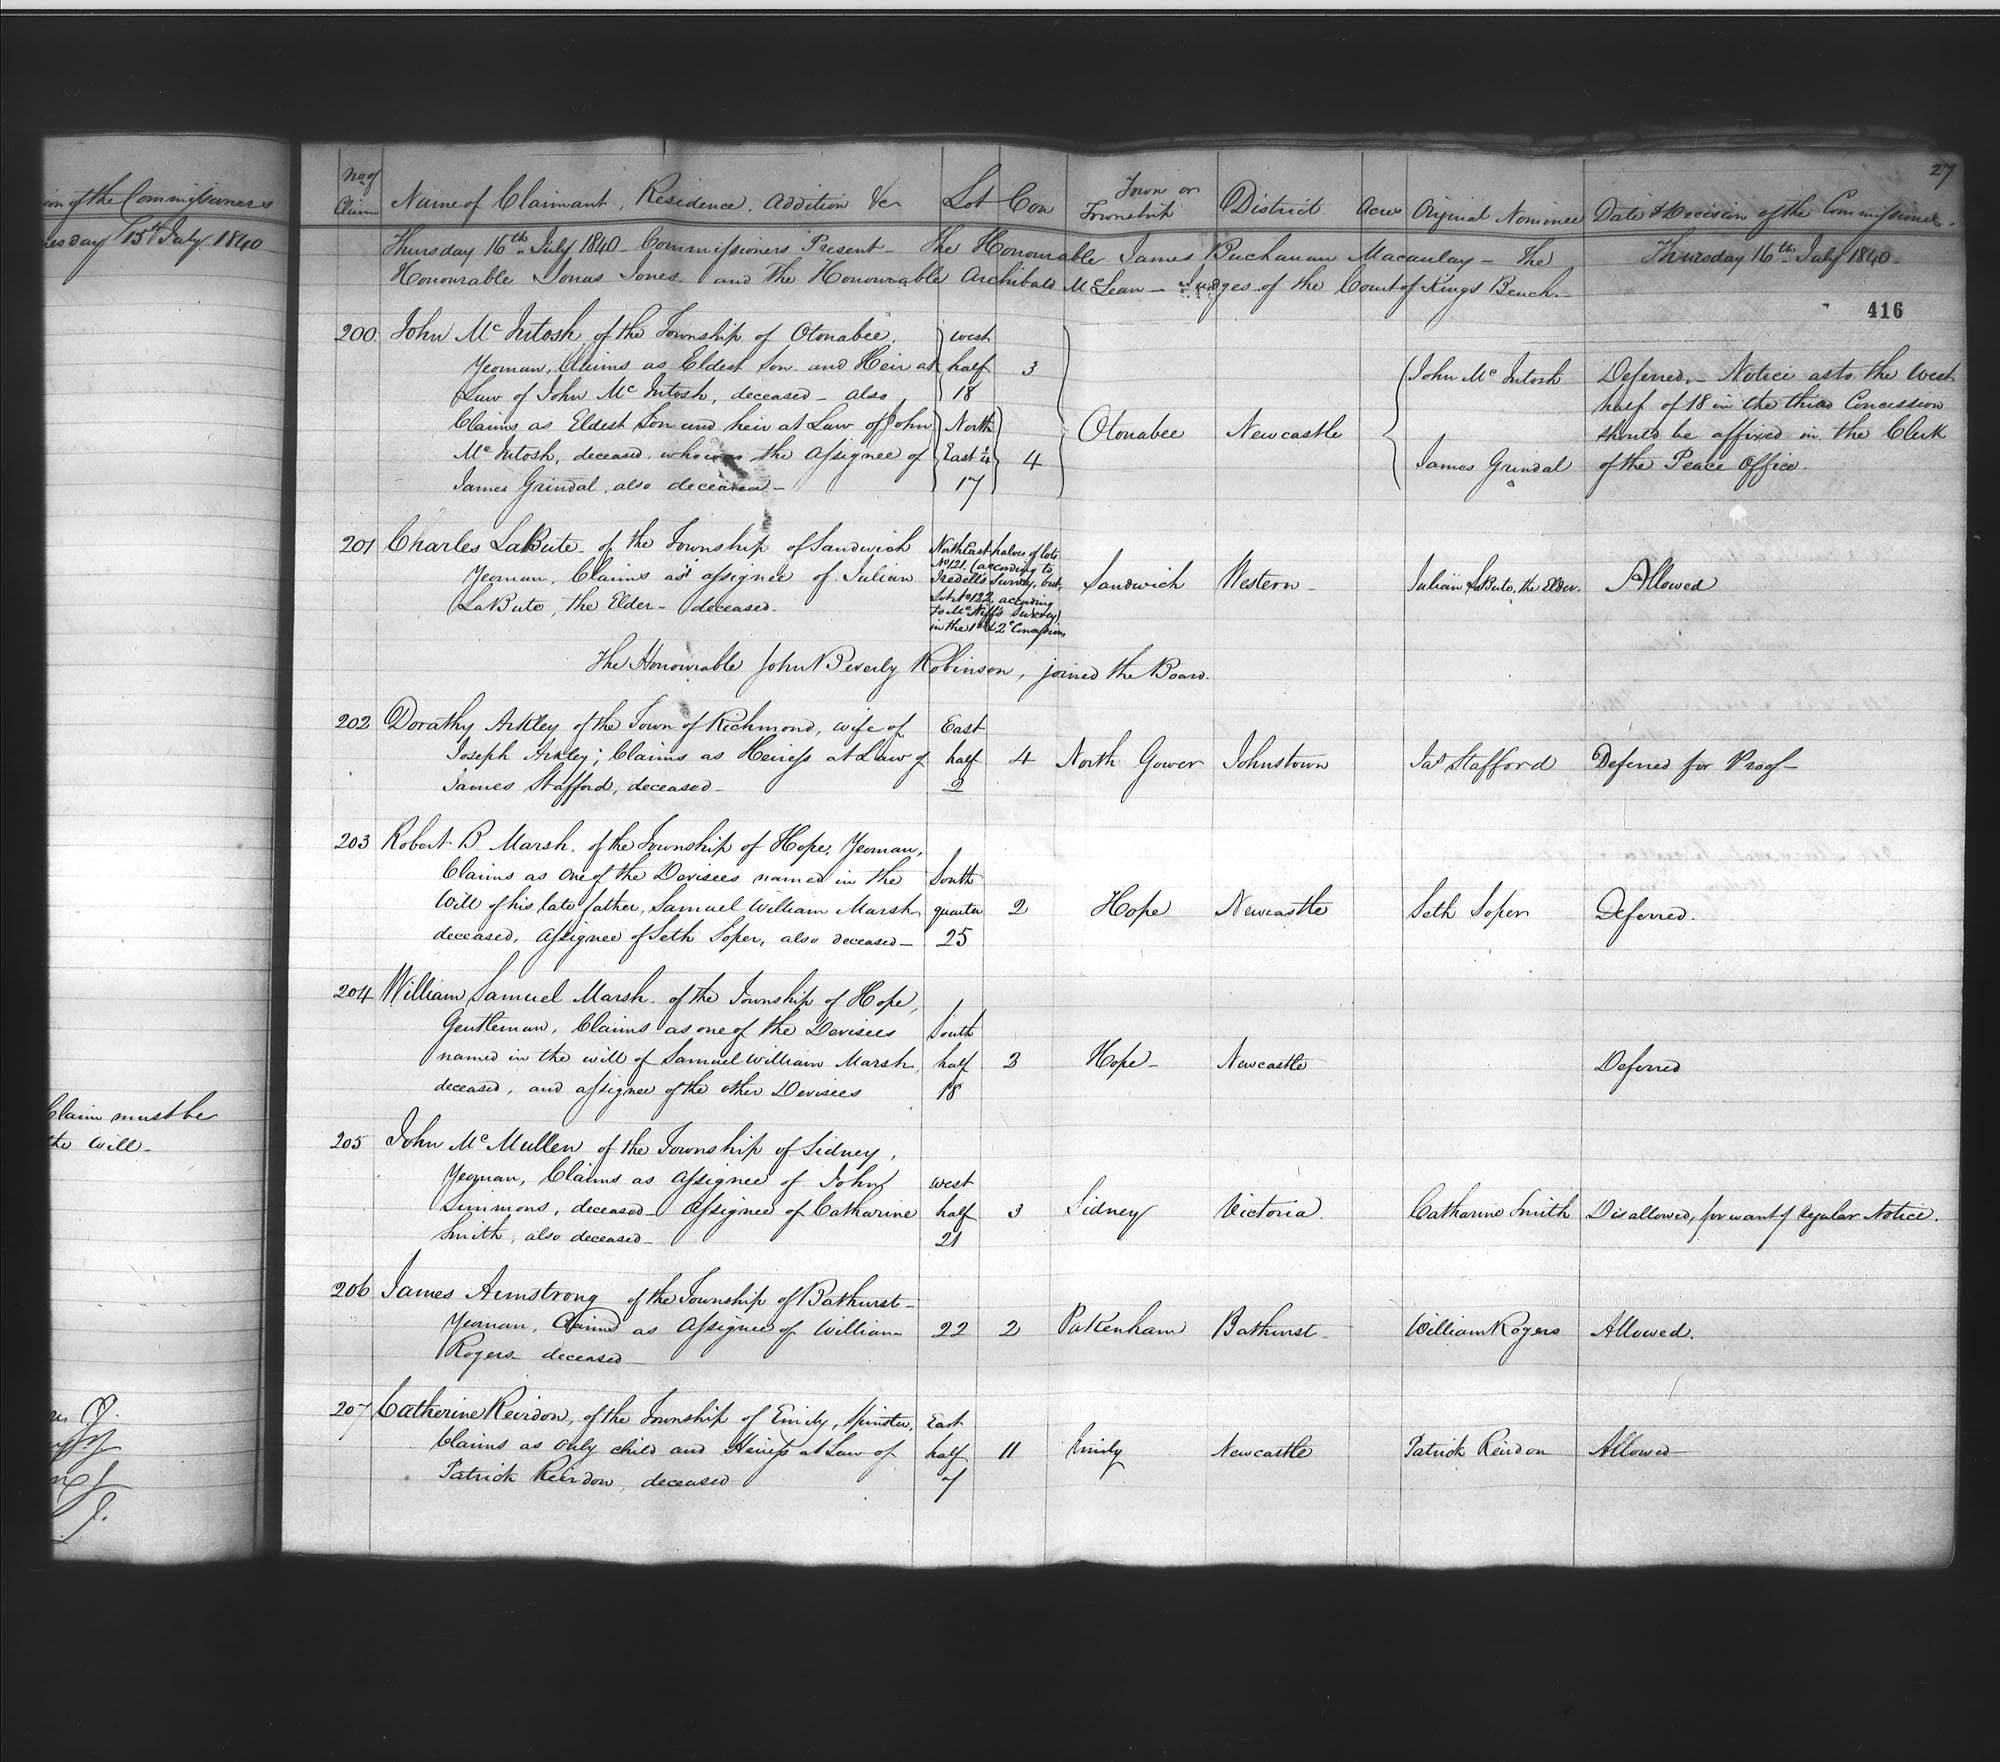 ion of the Commissioners
esday 15th July 1840
Claim must be
the Will -
27
No of Claim
Name of Claimant, Residence, Addition &c
Lot
Con
Town or Township
District
Acres
Original Nominee
Date & Decision of the Commissioners.
Thursday 16th July 1840 - Commissioners Present - The Honourable James Buchanan Macaulay - The
Honourable Jonas Jones - and The Honourable Archibald McLean - Judges of the Court of Kings Bench. -
Thursday 16th July 1840 -
416
200 John Mc Intosh, of the Township of Otonabee,
Yeoman, Claims as Eldest Son and Heir at
Law of John Mc Intosh, deceased - also
Claims as Eldest Son and heir at Law of John
Mc Intosh, deceased, who was the Assignee of
James Grindal, also deceased -
West
half
18
3
North
East 1/4
17
4
Otonabee
Newcastle
John Mc Intosh
James Grindal
Deferred, - Notice as to the West
half of 18 in the third Concession
should be affixed in the Clerk
of the Peace Office.
201 Charles LaBute - of the Township of Sandwich
Yeoman, Claims as assignee of Julian
LaBute, the Elder - deceased.
North East halves of lots
No 121, (according to
Iredell's Survey, but,
Lot No 122, according
to Mc Niff's Survey)
in the 1st & 2d Concessions
Sandwich
Western -
Julian LaBute, the Elder.
Allowed
The Honourable John Beverly Robinson, joined the Board.
202 Dorathy Arkley of the Town of Richmond, wife of
Joseph Arkley; Claims as Heiress at Law of
James Stafford, deceased -
East
half
2
4
North Gower
Johnstown
Jas Stafford
Deferred for Proof -
203 Robert B. Marsh, of the Township of Hope, Yeoman,
Claims as one of the Devisees named in the
Will of his late father, Samuel William Marsh
deceased, Assignee of Seth Soper, also deceased -
South
quarter
25
2
Hope
Newcastle
Seth Soper
Deferred.
204 William Samuel Marsh of the Township of Hope,
Gentleman, Claims as one of the Devisees
named in the will of Samuel William Marsh,
deceased, and assignee of the other Devisees
South
half
18
3
Hope -
Newcastle
Deferred
205 John Mc Mullen of the Township of Sidney,
Yeoman, Claims as Assignee of John
Simmons, deceased - Assignee of Catharine
Smith, also deceased -
West
half
21
3
Sidney
Victoria.
Catharine Smith
Disallowed, for want of regular Notice.
206 James Armstrong of the Township of Bathurst -
Yeoman, Claims as Assignee of William
Rogers - deceased -
22
2
Pakenham
Bathurst -
William Rogers
Allowed.
207 Catherine Reirdon, of the Township of Emily, Spinster,
Claims as only child and Heiress at Law of
Patrick Reirdon, deceased
East
half
7
11
Emily
Newcastle
Patrick Reirdon
Allowed -